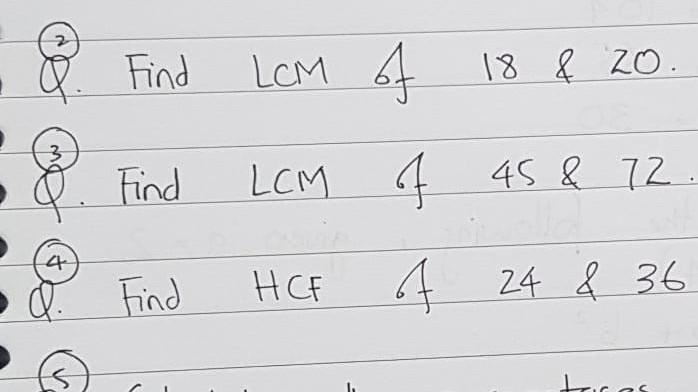 2
Q. Find LCM of 18 & 20.
3
Q. Find LCM of 45 & 72.
4
Q. Find HCF of 24 & 36
5